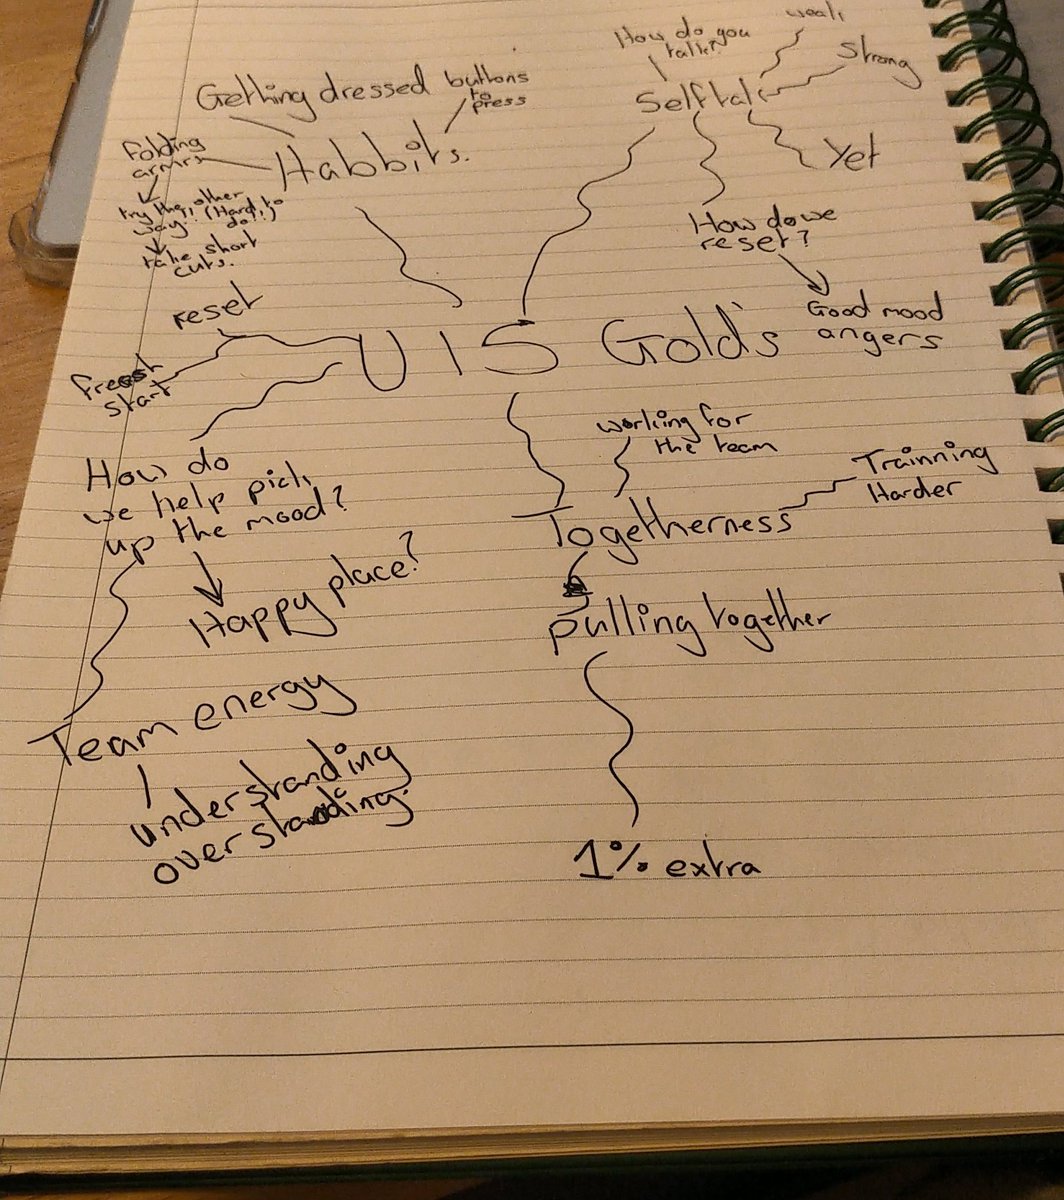 How do you
talk?
weak
Strong
Selftalk
Yet
Getting dressed
buttons
to
press
Folding
arms
Habbits.
try the other
way. (Hard to
do)
take short
cuts.
How do we
reset?
Good mood
angers
reset
start
U15 Gold's
working for
the team
Trainning
Harder
Togetherness
How do
we help pick
up the mood?
Happy place?
pulling together
Team energy
understanding
overstanding.
1% extra